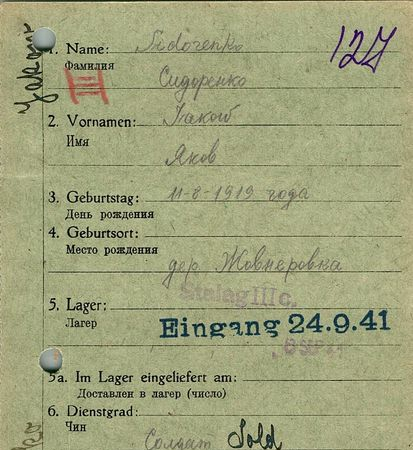 127
1. Name: Sidorenko
Фамилия
III
Сидоренко
2. Vornamen: Jakob
Имя
Яков
3. Geburtstag: 11-8-1919 года
День рождения
4. Geburtsort:
Место рождения
дер. Жовнеровка
Stalag III c.
5. Lager:
Лагер
Eingang 24.9.41
SEP.
5a. Im Lager eingeliefert am:
Доставлен в лагер (число)
6. Dienstgrad:
Чин
Солдат Sold